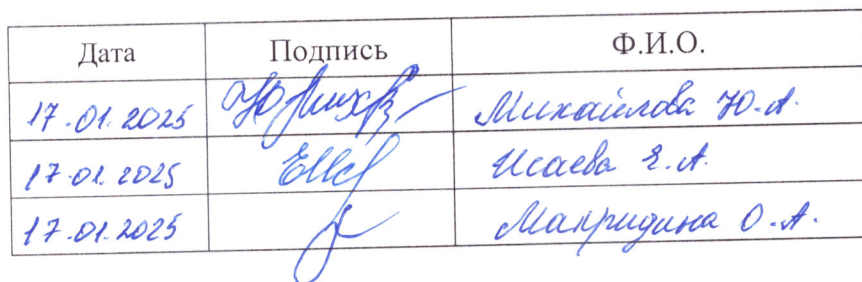 Дата Подпись Ф.И.О.
17.01.2025 Михайлова Ю.А.
17.01.2025 Исаева Е.А.
17.01.2025 О.А.